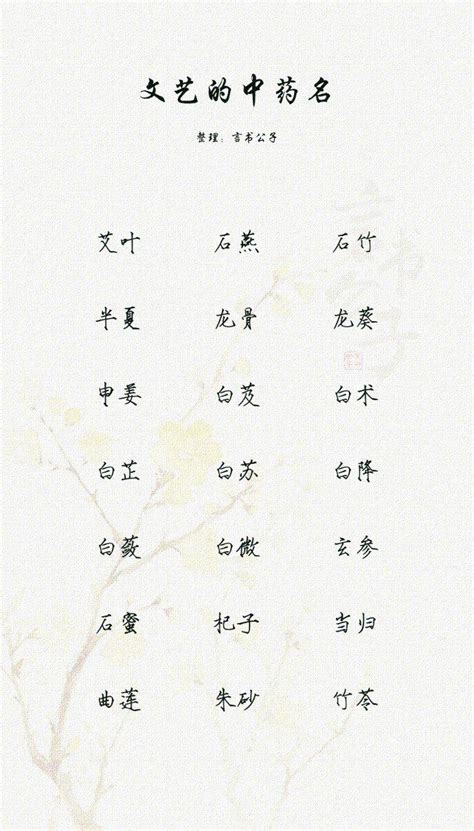 文艺的中药名
整理：言书公子
艾叶 石燕 石竹
半夏 龙骨 龙葵
申姜 白芨 白术
白芷 白苏 白降
白蔹 白微 玄参
石蜜 杞子 当归
曲莲 朱砂 竹苓
言书公子